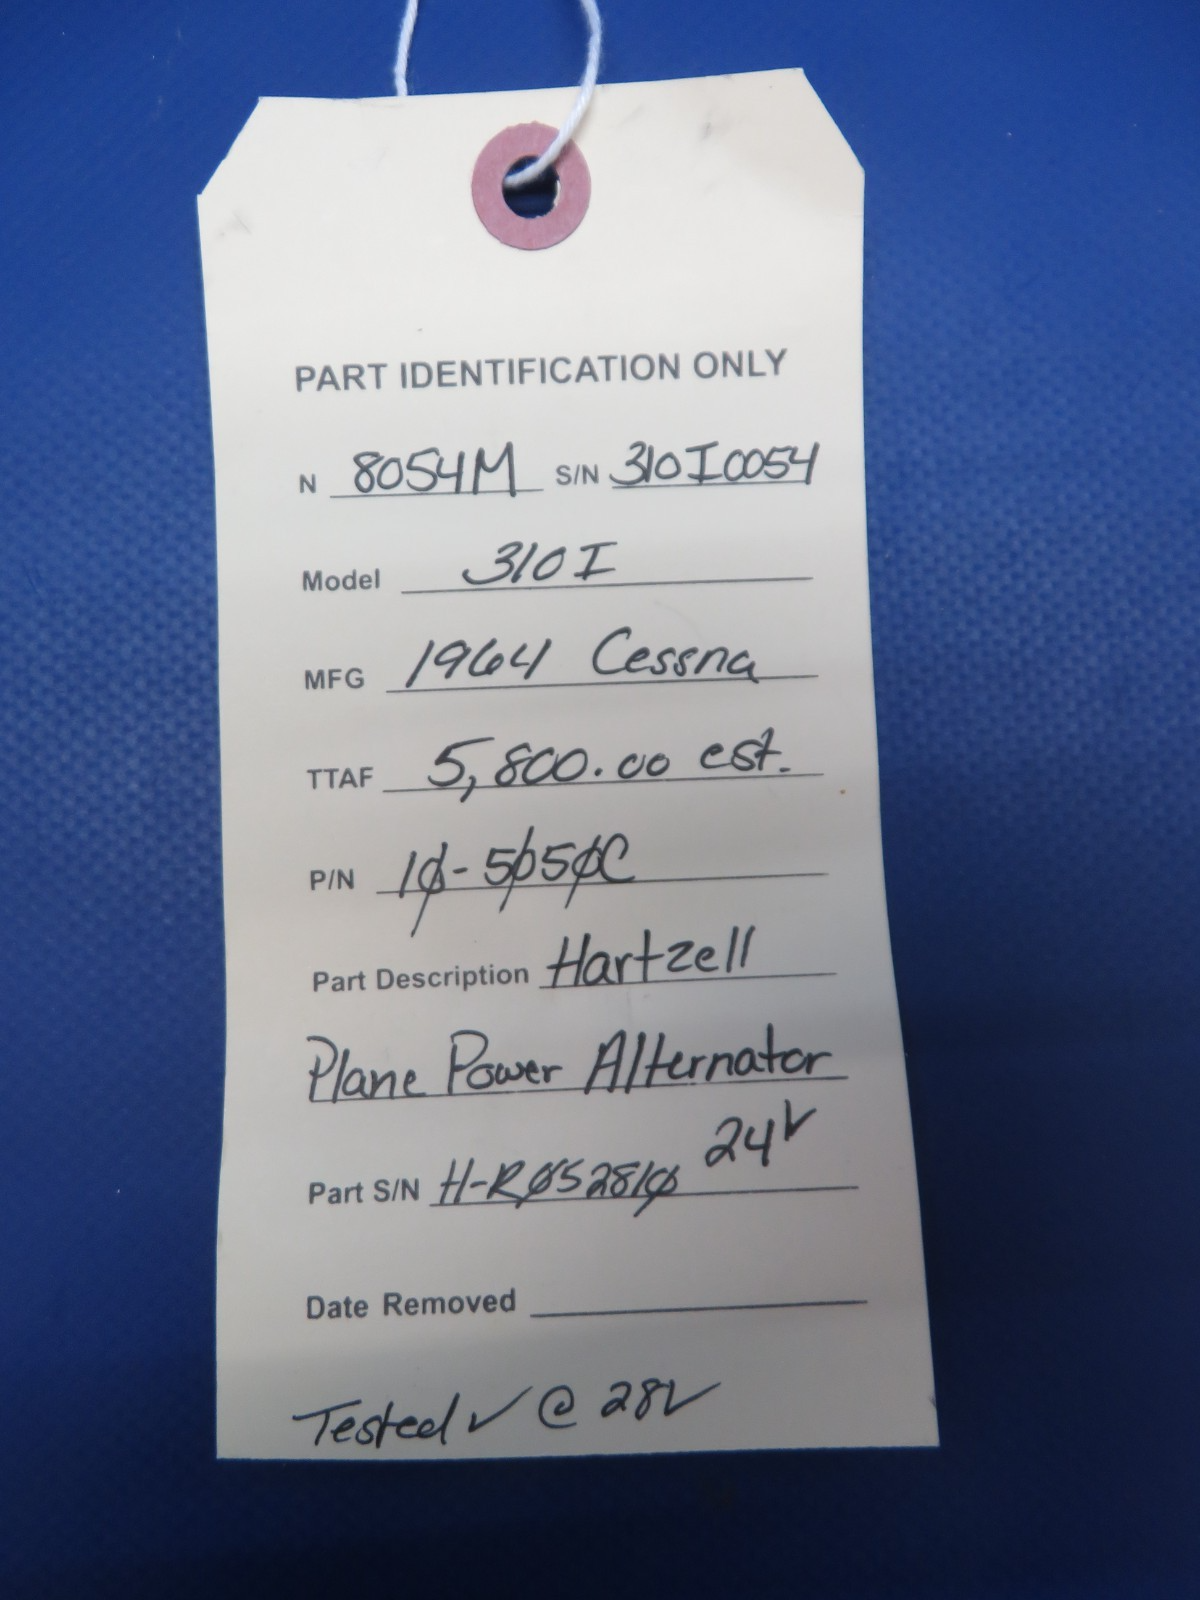 PART IDENTIFICATION ONLY
N 8054M S/N 310I0054
Model 310I
MFG 1964 Cessna
TTAF 5,800.00 est.
P/N 1Ø-5Ø5ØC
Part Description Hartzell
Plane Power Alternator
24V
Part S/N H-RØ5281Ø
Date Removed
Tested ✓ @ 28V